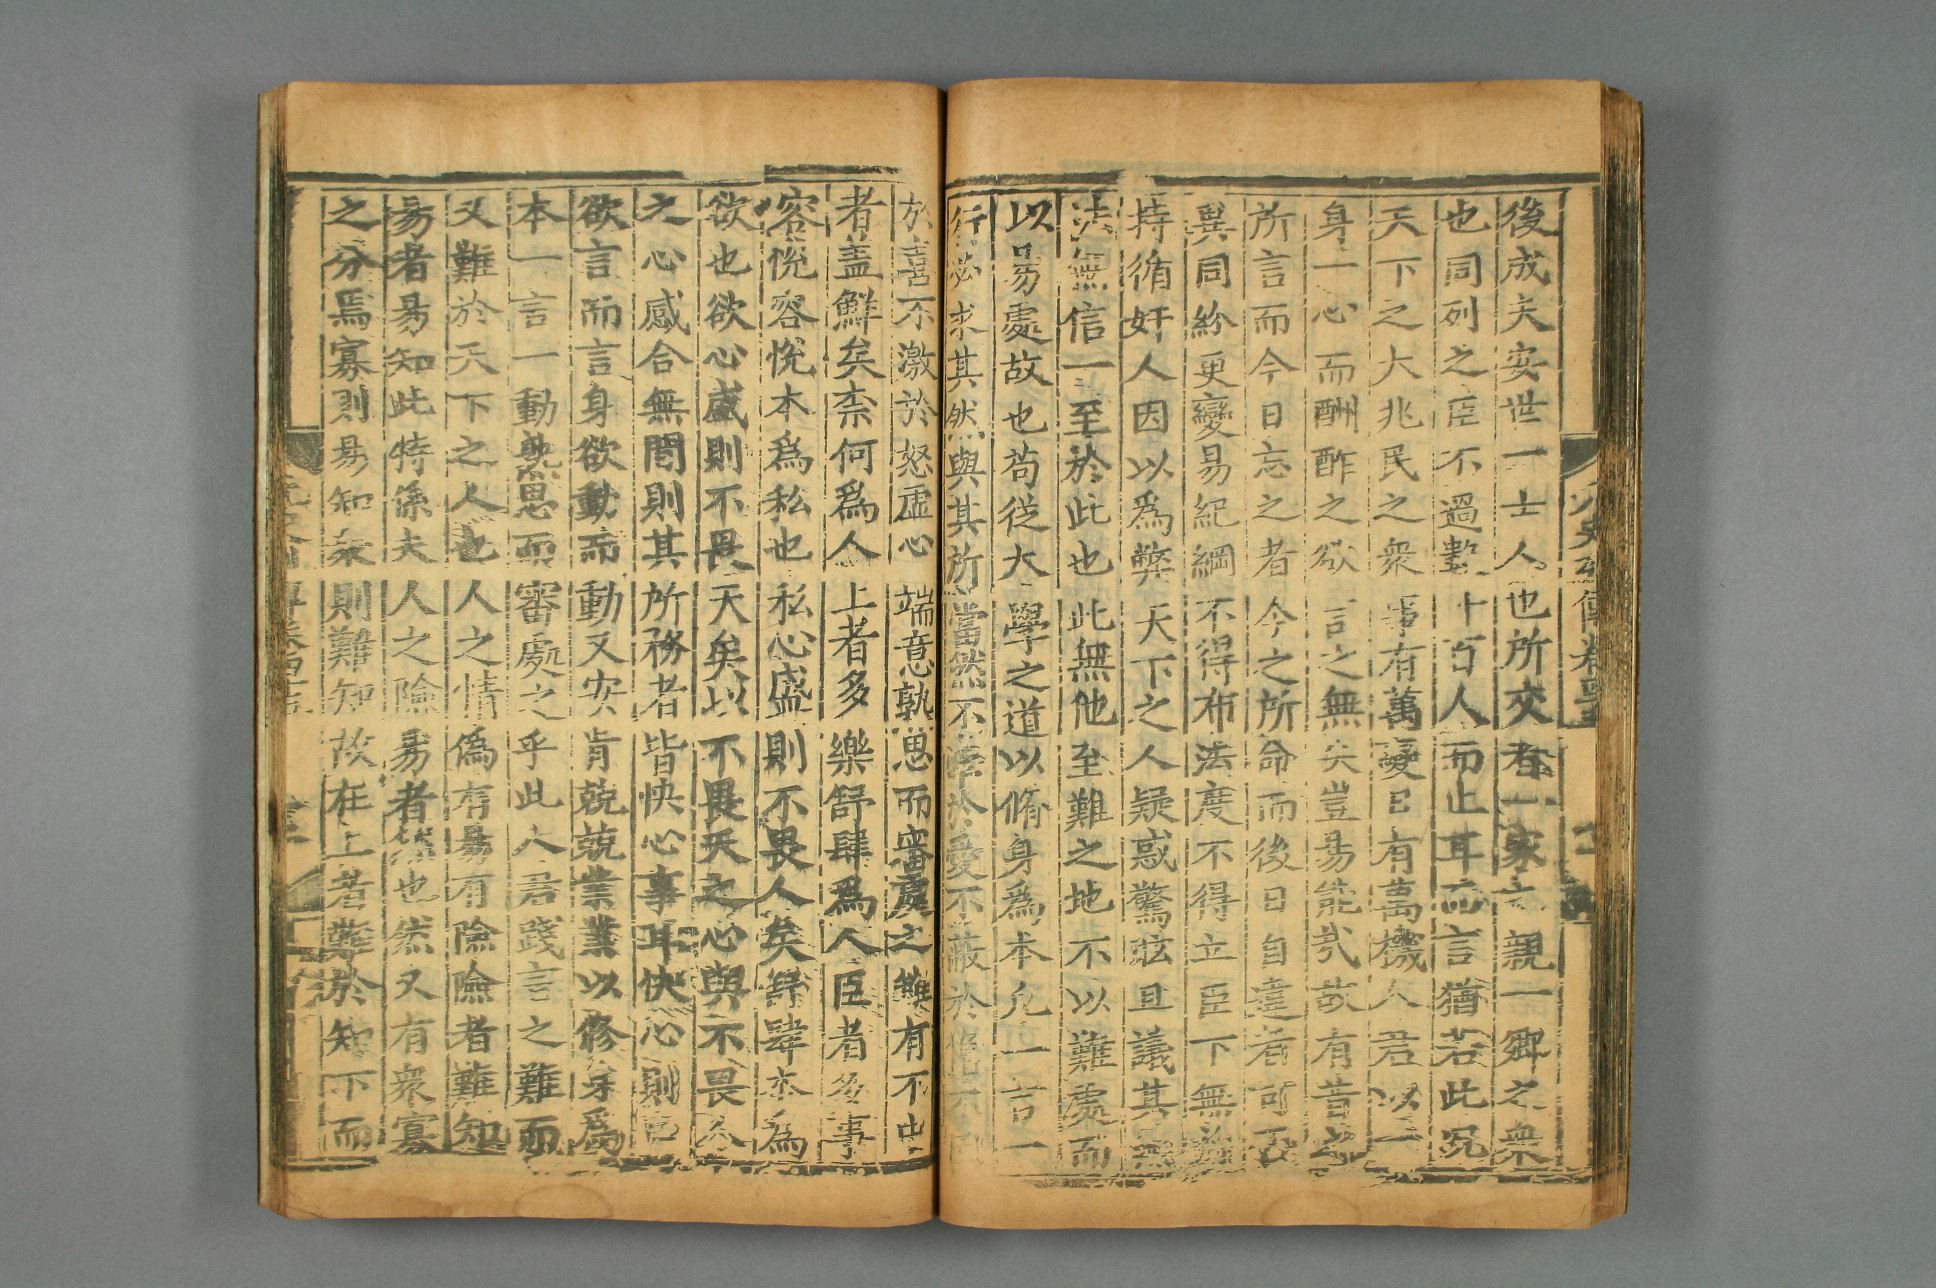 後成夫安世一士人也所交者一家之親一鄉之衆
也同列之臣不過數十百人而止耳而言猶若此况
天下之大兆民之衆事有萬變日有萬機人君以一
身一心而酬酢之欲言之無失豈易能哉故有昔之
所言而今日忘之者今之所命而後日自違者可否
異同紛更變易紀綱不得布法度不得立臣下無所
持循奸人因以爲弊天下之人疑惑驚眩且議其無
法無信一至於此也此無他至難之地不以難處而
以易處故也苟從大學之道以脩身爲本凡一言一
行必求其然與其所當然不牽於愛不蔽於憎不因
於喜不激於怒虛心端意熟思而審處之雖有不中
者盖鮮矣柰何爲人上者多樂舒肆爲人臣者多事
容悅容悅本爲私也私心盛則不畏人矣舒肆本爲
欲也欲心盛則不畏天矣以不畏天之心與不畏人
之心感合無間則其所務者皆快心事耳快心則口
欲言而言身欲動而動又安肯兢兢業業以修身爲
本一言一動熟思而審處之乎此人君踐言之難而
又難於天下之人也人之情僞有易有險險者難知
易者易知此特係夫人之險易者然也然又有衆寡
之分焉寡則易知衆則難知故在上者難於知下而
元史列傳卷四十五